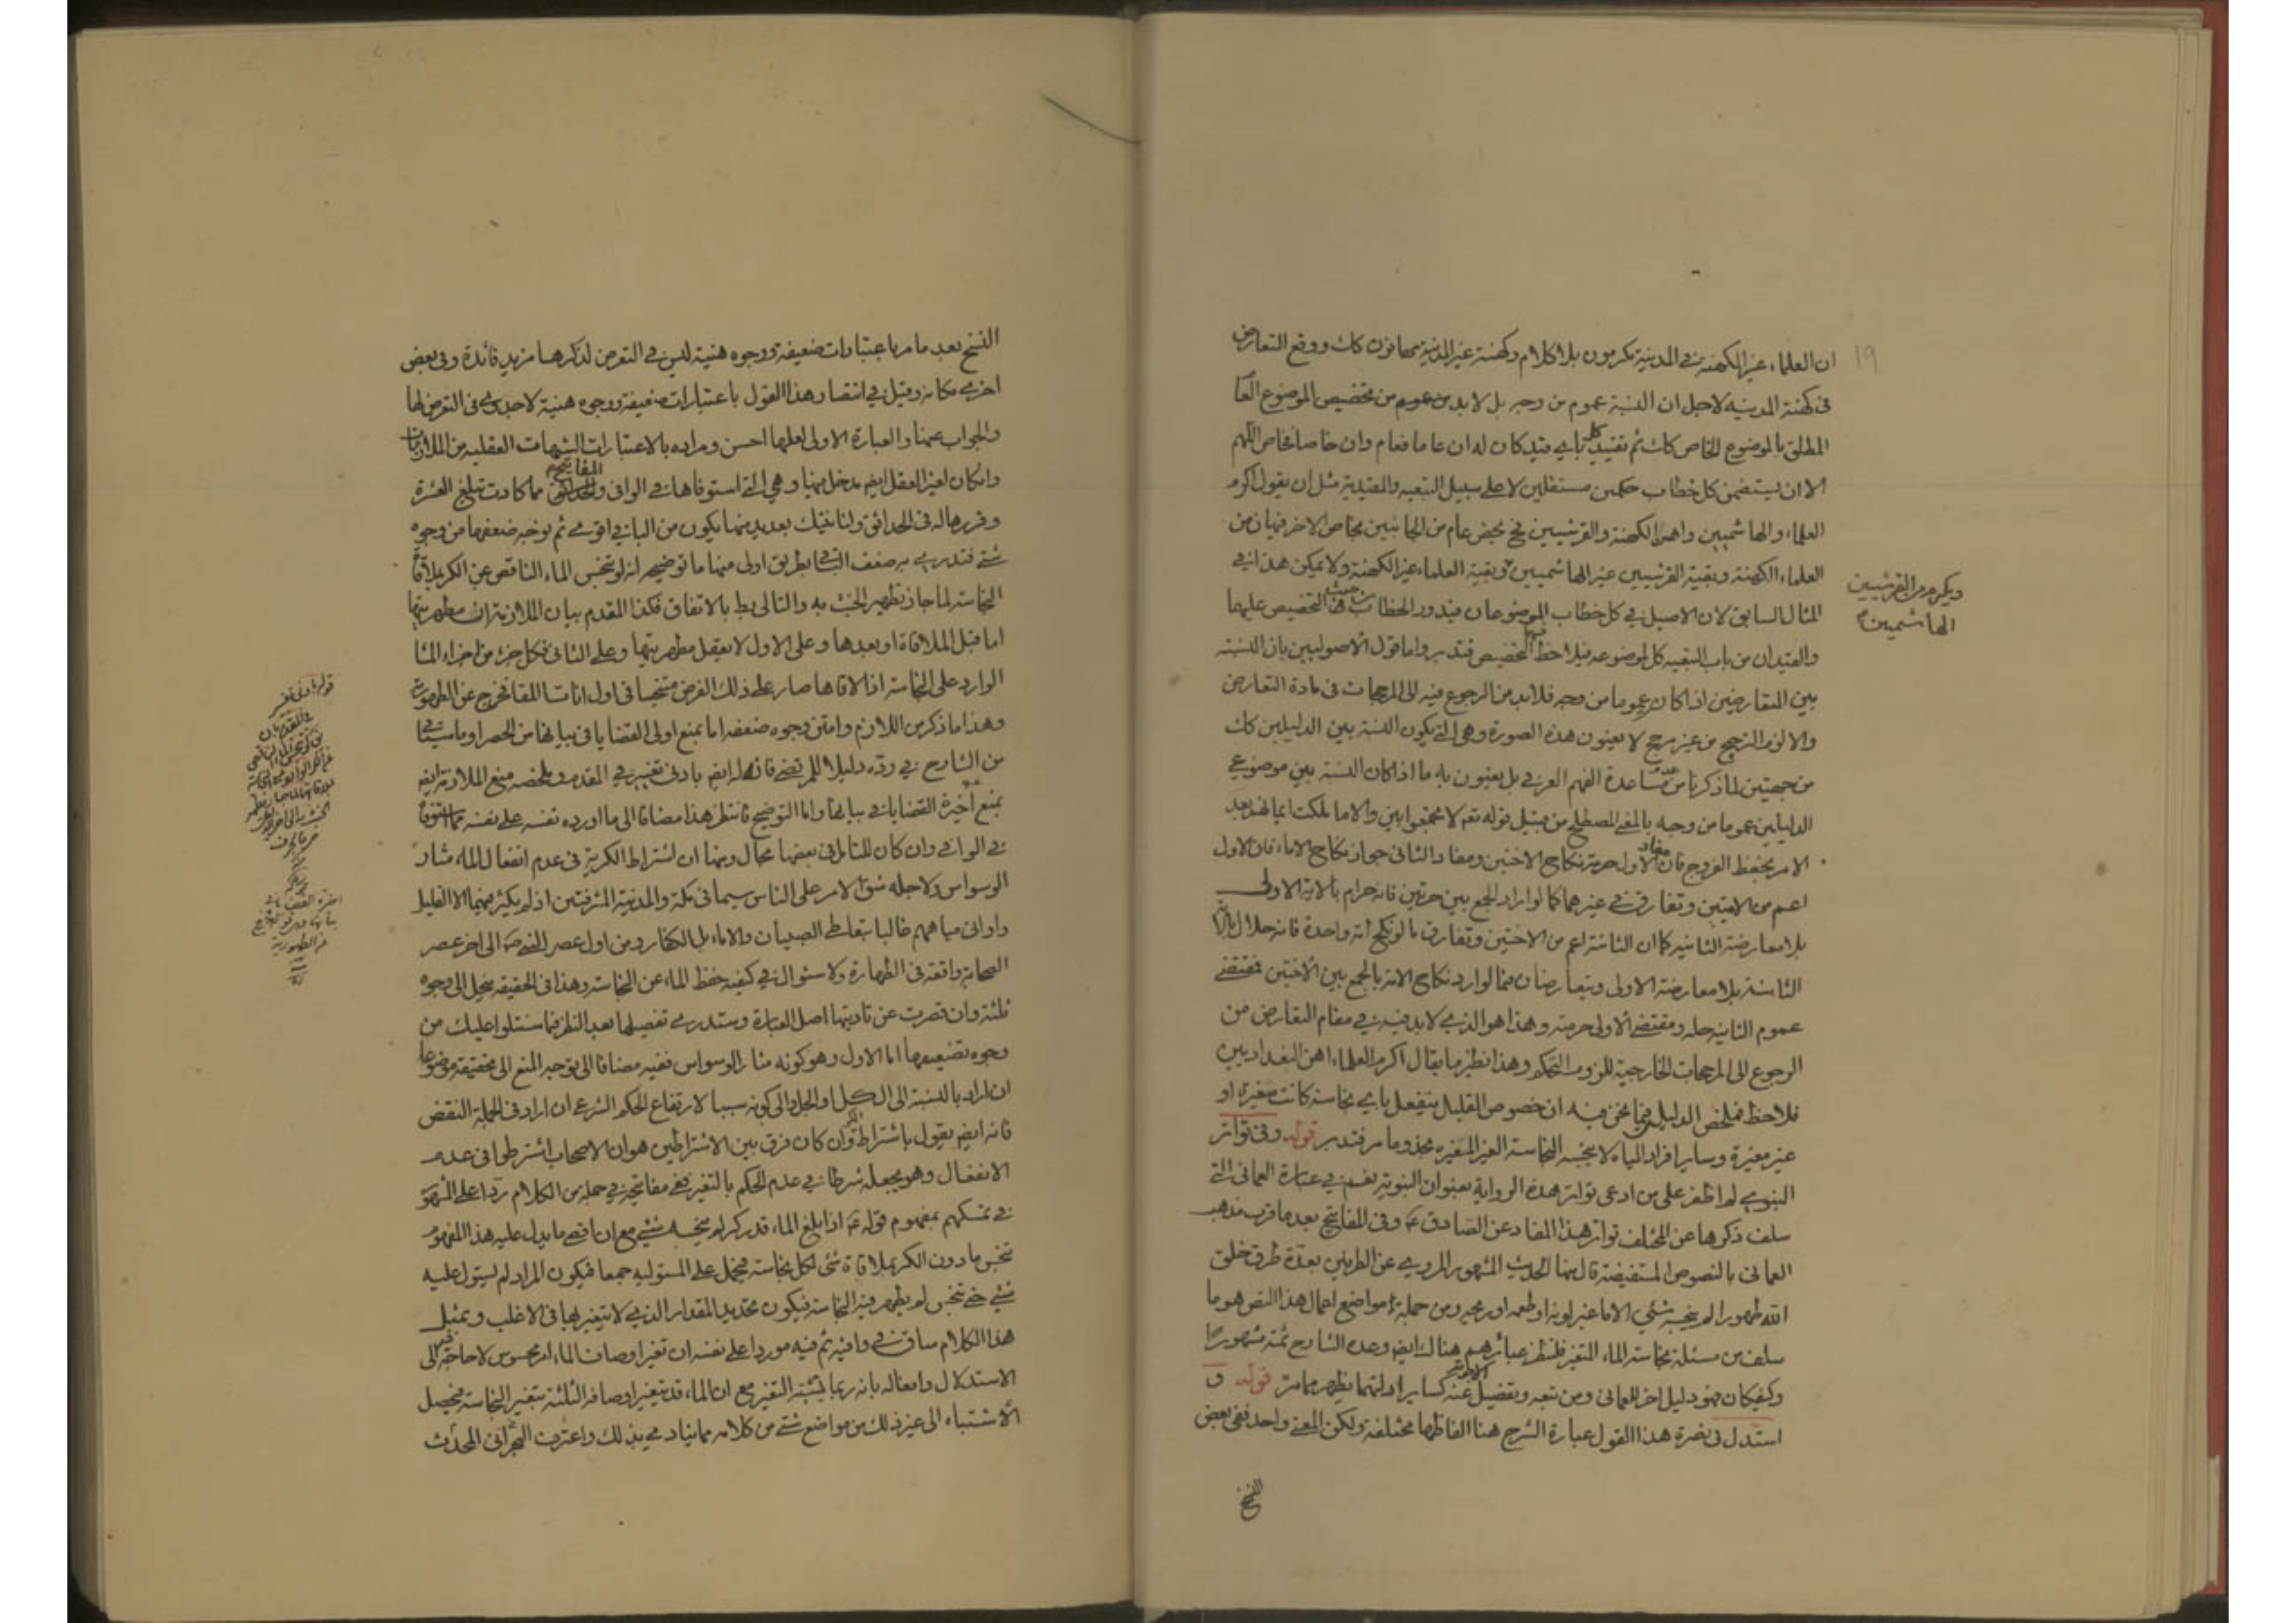 ١٩
ان العلماء غير الكهنة في المدينة يكرمون بلا كلام وكهنة غير المدينة يهانون كك ووقع التعارض
في كهنة المدينه لاجل ان النسبة عموم من وجه بل لا بد من تخصيص الموضوع العام
المطلق بالموضوع الخاص كك ثم تقييد كل باي قيد كان له ان عاما فعام وان خاصا فخاص اللهم
الا ان يتضمن كل خطاب حكمين مستقلين لا على سبيل التبعيه والقيدية مثل ان يقول اكرم
العلماء والهاشميين واهن الكهنة والقرشيين فح يخص عام من الجانبين بخاص الاخر فيهان من
العلماء الكهنة وبقية القرشيين غير الهاشميين وبقية العلماء غير الكهنة ولا يمكن هذا في
ويكرم من القرشيين
الهاشميين
المثال السابق لان الاصيل في كل خطاب الموضوعان فيدور الخطاب من حيث التخصيص عليهما
والقيدان من باب التبعيه كل لموضوعه فيلاحظ فيها التخصيص فتدبر واما قول الاصوليين بان النسبة
بين المتعارضين اذا كان عموما من وجه فلا بد من الرجوع فيه الى المرجحات في مادة التعارض
والا لزم الترجيح من غير مرجح لا يعنون هذه الصورة وهي التي يكون النسبة بين الدليلين كك
من جهتين لما ذكرنا من عدم مساعدة الفهم العرفي بل يعنون به ما اذا كان النسبة بين موضوعي
الدليلين عموما من وجه بالمعنى المصطلح من قبيل قوله تعم لا تجمعوا بين والا ما ملكت ايمانهم بعد
الامر بحفظ الفروج فان مفاد الاول حرمة نكاح الاختين ومفاد الثاني جواز نكاح الاماء فان الاول
اعم من الامتين وتفارق في غيرهما كما لو اراد الجمع بين حرتين فانه حرام بالاية الاولى
بلا معارضة الثانيه كما ان الثانية اعم من الاختين وتفارق بما لو نكح امة واحدة فانه حلال بالاية
الثانية بلا معارضة الاولى ويتعارضان فيما لو اريد نكاح الامة بالجمع بين الاختين فمقتضى
عموم الثانيه حله ومقتضى الاولى حرمته وهذا هو الذي لا بد فيه في مقام التعارض من
الرجوع الى المرجحات الخارجية للزوم التحكم وهذا نظير ما يقال اكرم العلماء اهن البغداديين
فلاحظ فملخص الدليل فيما نحن فيه ان خصوص القليل ينفعل باي نجاسة كانت مغيرة او
غير مغيرة وساير افراد المياه لا ينجسه النجاسة الغير المغيره فخذ وما مر فتدبر قوله وفي تواتر
النبوي لم اظفر على من ادعى تواتر هذه الرواية بعنوان النبوية نعم في عبارة العماني التي
سلف ذكرها عن المختلف تواتر هذا المفاد عن الصادق ع وفي المفاتيح بعد ما قرب مذهب
العماني بالنصوص المستفيضة قال منها الحديث المشهور المروي عن الطرفين بعدة طرق خلق
الله طهورا لم ينجسه شئي الا ما غير لونه او طعمه او ريحه ومن جملة مواضع اعمال هذا النص هو ما
سلف من مسئلة نجاسة الماء المتغير فلتنظر عبائرهم هناك ايضم وعده الشارح ثمة مشهورا
وكيف كان فهو دليل اخر للعماني ومن تبعه ويفصل عنه كساير ادلتهما يظهر مما مر قوله و
استدل في نصرة هذا القول عبارة الشرح هنا الفاظها مختلفة ولكن المعنى واحد ففي بعض
النسخ
النسخ بعد ما مر باعتبارات ضعيفة ووجوه هنية ليس في التعرض لذكرها مزيد فائدة وفي بعض
اخر مكانه وقيل في انتصار هذا القول باعتبارات ضعيفة ووجوه هنية لا جدوى في التعرض لها
والجواب عنها والعبارة الاولى لعلها احسن ومراده بالاعتبارات الشبهات العقليه من الملازمات
وان كان لغير العقل ايضم مدخل فيها وهي التي استوفاها في الوافي والمفاتيح مما كادت تبلغ العشرة
وقررها له في الحدائق ولنا نقتك بعديد منها يكون من الباقي اقوى ثم نوجه ضعفها من وجوه
شتى فتدري به ضعف الباقي بطريق اولى منها ما توضيحه انه لو تنجس الماء الناقص عن الكر بملاقاة
النجاسة لما جاز تطهير الخبث به والتالي بط بالاتفاق فكذا المقدم بيان الملازمة ان مطهريتها
اما قبل الملاقاة او بعدها وعلى الاول لا يعقل مطهريتها وعلى الثاني فكل جزء من اجزاء الماء
الوارد على النجاسة اذا لاقاها صار على ذلك الفرض متنجسا في اول انات اللقاء فخرج عن الطهورية
وهذا ما ذكر من اللازم وامتن وجوه ضعفه اما بمنع اولى القضايا في بيانها من الحصر او ما سيئتي
من الشارح في رده دليلا للمرتضى فانه له ايضم بادنى تغيير في المقدم وملخصه منع الملازمة ايضم
بمنع اخيرة القضايا في بيانها واما التوضيح فانتظر هذا مضافا الى ما اورده نفسه على نفسه
في الوافي وان كان للتامل في بعضها مجال ومنها ان اشتراط الكرية في عدم انفعال الماء مثار
الوسواس ولاجله شق الامر على الناس سيما في مكة والمدينة المشرفتين اذ لم يكثر فيهما الا القليل
واواني مياههم غالبا يتعاطى الصبيان والاماء بل الكفار ومن اول عصر النبي ص الى اخر عصر
الصحابة واقعة في الطهارة ولا سئوال في كيفيه حفظ الماء عن النجاسة وهذا في الحقيقه ينحل الى وجوه
ثلثة وان قصرت عن تاديتها اصل العبارة وستدري تفصيلها بعد النظر فيما سنتلوا عليك من
وجوه تضعيفها اما الاول وهو كونه مثار الوسواس ففيه مضافا الى توجه المنع الى تحقيقه موضوعا
ان اراد بالنسبة الى الكل او الجل والى كونه سببا لارتفاع الحكم الشرعي ان اراد في الجملة النقض
فانه ايضم يقول باشتراط الكر وان كان فرق بين الاشتراطين هو ان الاصحاب اشترطوا في عدم
الانفعال وهو يجعله شرطا في عدم الحكم بالتغير ففي مفاتيحه في جملة من الكلام ردا على المشهور
في تمسكهم بمفهوم قوله ع اذا بلغ الماء قدر كر لم ينجسه شئي مع ان اقصى ما يدل عليه هذا المفهوم
تنجس ما دون الكر بملاقاة شئ لا كل نجاسة فيحمل على المستوليه جمعا فيكون المراد لم يستول عليه
شئي حتى تنجس لم يظهر فيه النجاسة فيكون تحديد المقدار الذي لا يتغير بها في الاغلب وبمثل
هذا الكلام ساق في وافيه ثم فيه موردا على نفسه ان تغير اوصاف الماء امر محسوس لا حاجة فيه الى
الاستدلال وامثاله بانه ربما يشتبه التغير مع ان الماء قد يتغير اوصافه الثلثة بتغير النجاسة فيحصل
الاشتباه الى غير ذلك من مواضع شتى من كلامه مما ينادى بذلك واعترف البحراني المحدث
قوله بادنى تغيير